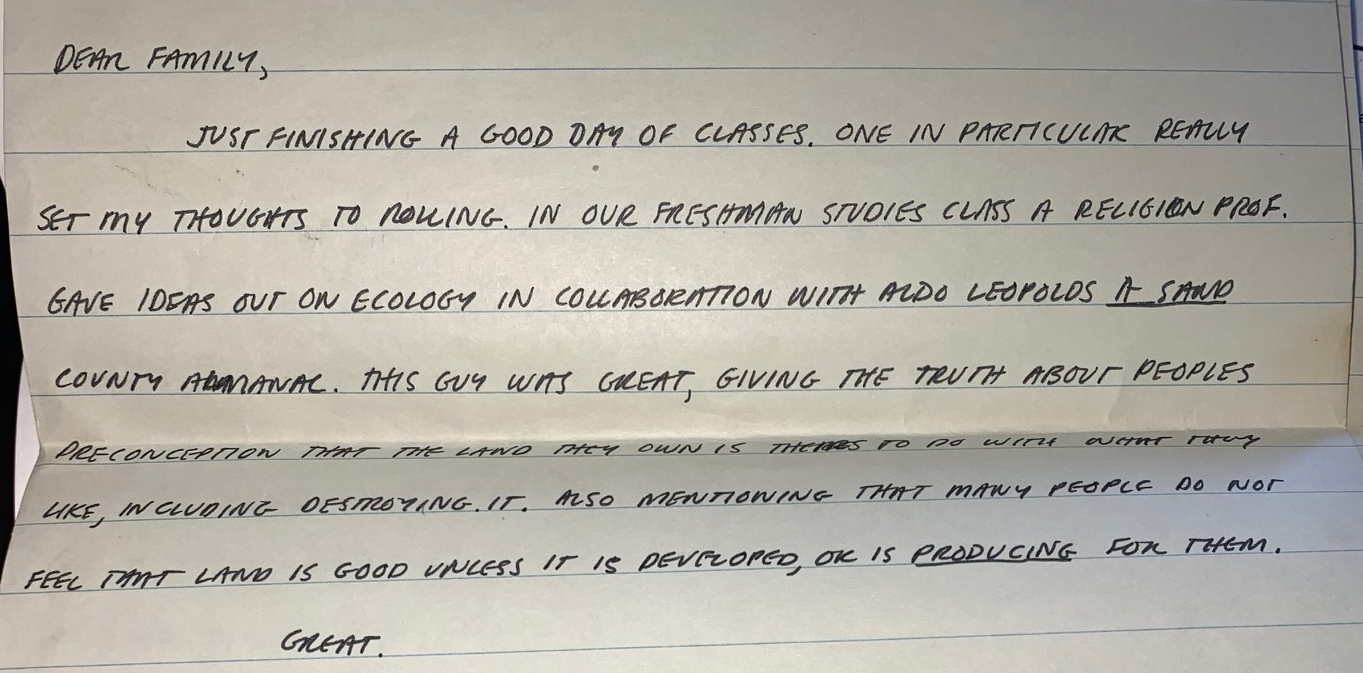 DEAR FAMILY,
JUST FINISHING A GOOD DAY OF CLASSES. ONE IN PARTICULAR REALLY
SET MY THOUGHTS TO ROLLING. IN OUR FRESHMAN STUDIES CLASS A RELIGION PROF.
GAVE IDEAS OUT ON ECOLOGY IN COLLABORATION WITH ALDO LEOPOLDS A SAND
COUNTY ALMANAC. THIS GUY WAS GREAT, GIVING THE TRUTH ABOUT PEOPLES
PRECONCEPTION THAT THE LAND THEY OWN IS THEIRS TO DO WITH WHAT THEY
LIKE, INCLUDING DESTROYING. IT. ALSO MENTIONING THAT MANY PEOPLE DO NOT
FEEL THAT LAND IS GOOD UNLESS IT IS DEVELOPED, OR IS PRODUCING FOR THEM.
GREAT.